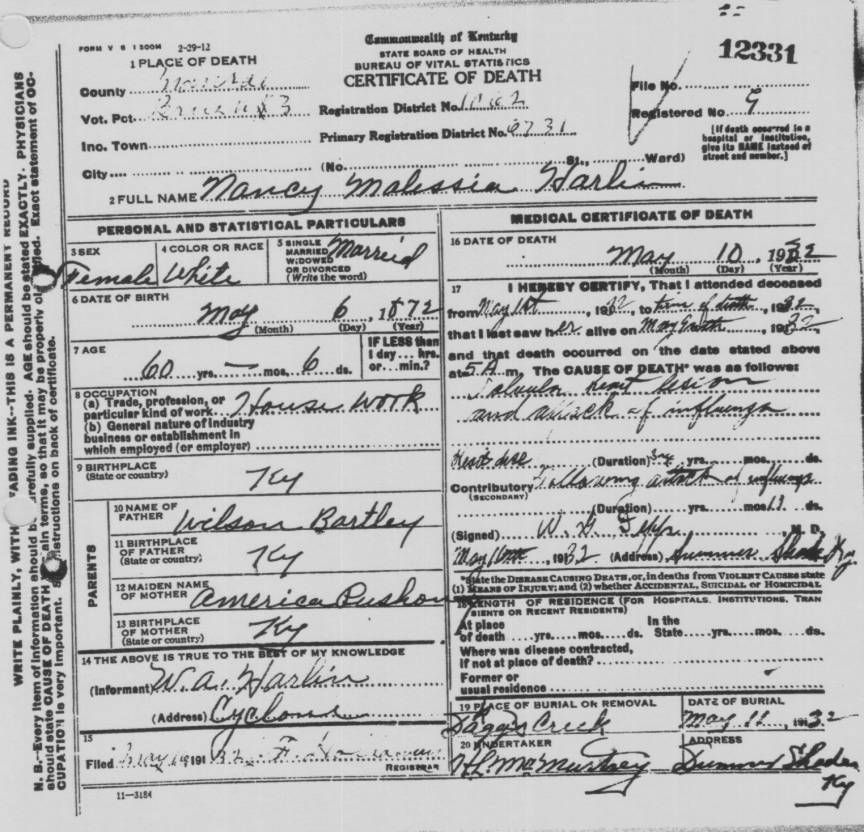 FORM V S 1 200M 2-29-12
Commonwealth of Kentucky
STATE BOARD OF HEALTH
BUREAU OF VITAL STATISTICS
CERTIFICATE OF DEATH
12331
1 PLACE OF DEATH
County
Vot. Pct. #3
Inc. Town
City
Registration District No. 1062
Primary Registration District No. 6731
(No. St., Ward)
File No.
Registered No. 9
[If death occurred in a hospital or institution, give its NAME instead of street and number.]
2 FULL NAME Nancy Malessia Harlin
PERSONAL AND STATISTICAL PARTICULARS
3 SEX Female
4 COLOR OR RACE White
5 SINGLE MARRIED WIDOWED OR DIVORCED (Write the word) Married
6 DATE OF BIRTH
May 6, 1872
(Month) (Day) (Year)
7 AGE
60 yrs. — mos. 6 ds.
IF LESS than 1 day... hrs. or... min.?
8 OCCUPATION
(a) Trade, profession, or particular kind of work House work
(b) General nature of industry business or establishment in which employed (or employer)
9 BIRTHPLACE (State or country) Ky
PARENTS
10 NAME OF FATHER Wilson Bartley
11 BIRTHPLACE OF FATHER (State or country) Ky
12 MAIDEN NAME OF MOTHER America
13 BIRTHPLACE OF MOTHER (State or country) Ky
14 THE ABOVE IS TRUE TO THE BEST OF MY KNOWLEDGE
(Informant) W.A. Harlin
(Address) Cyclone
15
Filed May 191 32
REGISTRAR
11—3184
MEDICAL CERTIFICATE OF DEATH
16 DATE OF DEATH
May 10, 1932
(Month) (Day) (Year)
17 I HEREBY CERTIFY, That I attended deceased
from May 1st, 1932, to time of death, 1932,
that I last saw her alive on May, 1932,
and that death occurred on the date stated above
at 5 A. m. The CAUSE OF DEATH* was as follows:
heart lesion
and attack of influenza
(Duration) yrs. mos. ds.
Contributory (SECONDARY) Following attack of influenza
(Duration) yrs. mos. ds.
(Signed) W. G., M. D.
May, 1932 (Address) Summer Shade Ky
*State the DISEASE CAUSING DEATH, or, in deaths from VIOLENT CAUSES state (1) MEANS OF INJURY; and (2) whether ACCIDENTAL, SUICIDAL OR HOMICIDAL.
18 LENGTH OF RESIDENCE (FOR HOSPITALS, INSTITUTIONS, TRANSIENTS OR RECENT RESIDENTS)
At place of death yrs. mos. ds. In the State yrs. mos. ds.
Where was disease contracted, if not at place of death?
Former or usual residence
19 PLACE OF BURIAL OR REMOVAL Creek
DATE OF BURIAL May 11, 1932
20 UNDERTAKER H.L. McMurtrey
ADDRESS Summer Shade Ky